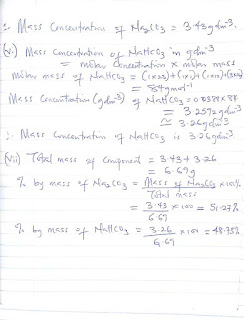 ∴ Mass Concentration of Na₂CO₃ = 3.43gdm⁻³.
(vi) Mass Concentration of NaHCO₃ in gdm⁻³
= molar concentration × molar mass
Molar mass of NaHCO₃ = (1×23)+(1×1)+(1×12)+(3×16)
= 84gmol⁻¹
Mass Concentration (gdm⁻³) of NaHCO₃ = 0.0388×84
= 3.2592gdm⁻³
≅ 3.26gdm⁻³
∴ Mass Concentration of NaHCO₃ is 3.26gdm⁻³
(vii) Total mass of Component = 3.43+3.26
= 6.69g
% by mass of Na₂CO₃ = Mass of Na₂CO₃ × 100%
Total mass
= 3.43 × 100 = 51.27%
6.69
% by mass of NaHCO₃ = 3.26 × 100 = 48.73%
6.69